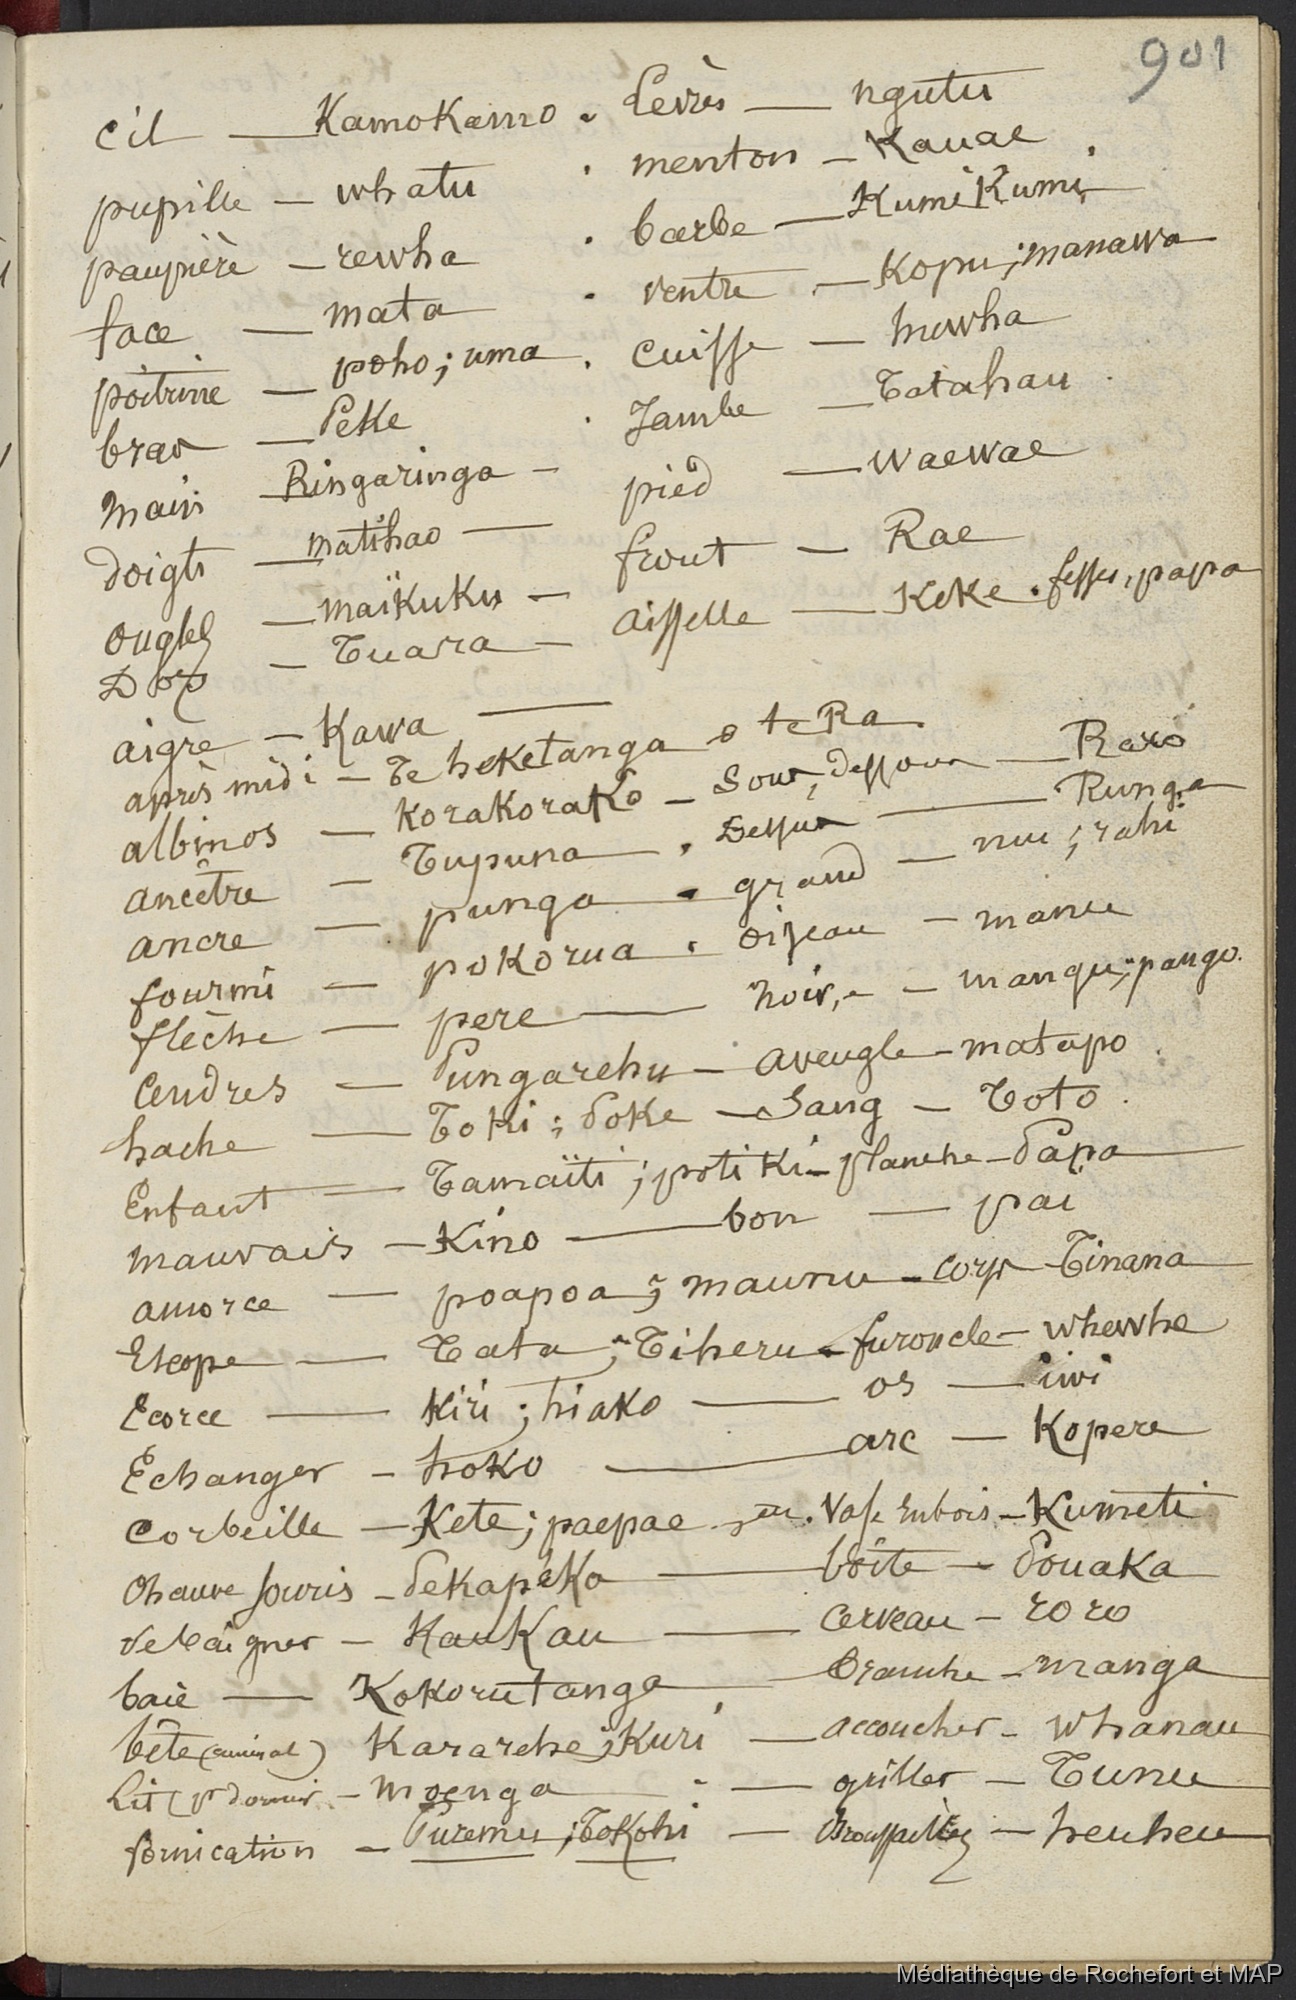 901
cil — KamoKamo . Levres — ngutu
pupille — whatu . menton — Kauae
paupière — rewha . barbe — KumiKumi
face — mata . ventre — Kopu ; manawa
poitrine — poho ; uma . cuisse — huwha
bras — PeKe . Jambe — Tatahau
Main — Ringaringa — pied — waewae
doigts — matihao — front — Rae
Ongles — maïKuKu — aisselle — KeKe . fesses, papa
Dos — Tuara —
aigre — Kawa —
après midi — Te heketanga o te Ra
albinos — KoraKoraKo — Sous, dessous — Raro
ancêtre — Tupuna . Dessus — Runga
ancre — punga . grand — nui ; rahi
fourmi — poKorua . oiseau — manu
flèche — pere — Noir, e — mangu ; pango.
Cendres — Pungarehu — aveugle — matapo
hache — Toki ; PoKe — Sang — Toto .
Enfant — Tamaïti ; potiKi — planche — Papa
mauvais — Kino — bon — pai
amorce — poapoa ; maunu — corps — Tinana
Escope — Tata ; Tiheru — furoncle — whewhe
Ecorce — Kiri ; hiako — os — iwi
Echanger — hoKo — arc — Kopere
Corbeille — Kete ; paepae . Vase en bois — Kumeti
Chauve souris — PeKapeKa — boîte — PouaKa
se baigner — KauKau — cerveau — roro
baie — KoKorutanga — branche — manga
bête (animal) Kararehe ; Kuri — accoucher — whanau
Lit (pr dormir — moenga — griller — Tunu
fornication — Puremu ; ToKohi — Broussailles — heuheu
Médiathèque de Rochefort et MAP